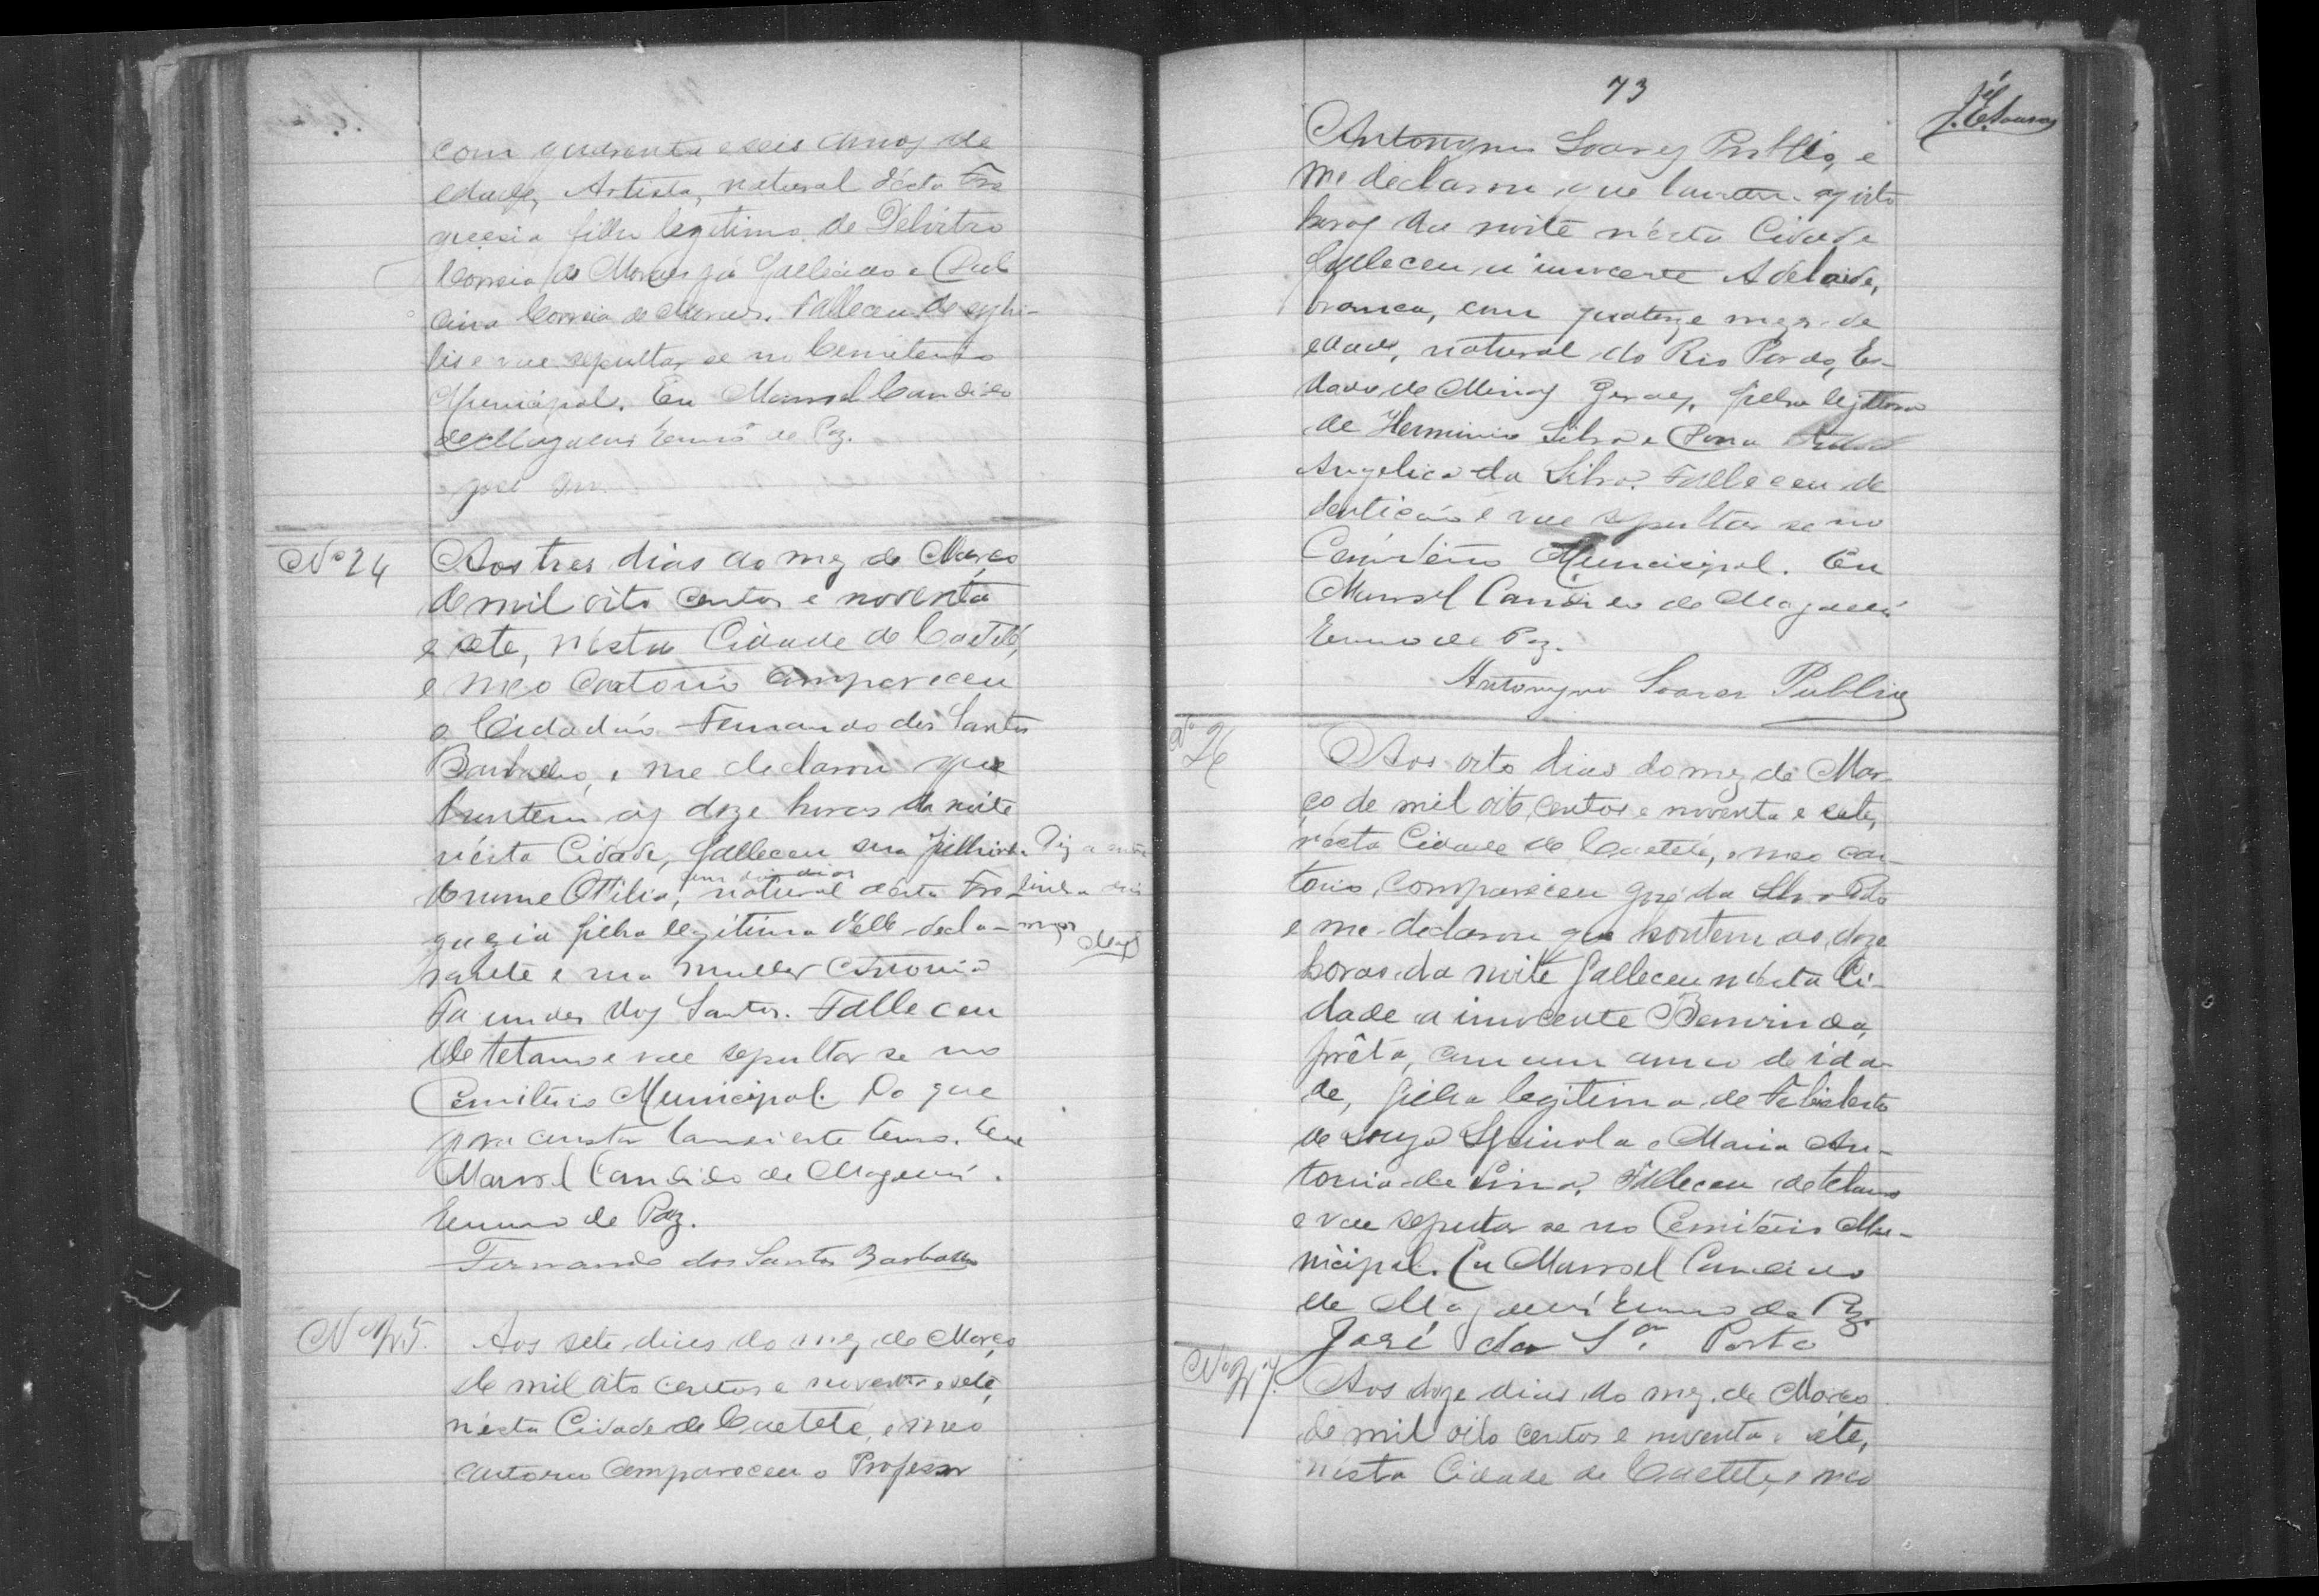 com quarenta e seis annos de
edade, Artista, natural désta Fre
guesia filho legitimo de
Correia de Moraes já fallecido e
Correia de Moraes. Falleceu de syphi-
lis e vae sepultar se no Cemiterio
Municipal. Eu Manoel Candido
de Paz.
Nº 24
Aos tres dias do mez de Março
de mil oito centos e noventa
e sete, nésta Cidade de Caeteté,
e meo Cartorio compareceu
o Cidadão Fernando dos Santos
Barbalho, e me declarou que
hontem as doze horas da noite
nésta Cidade, falleceu sua filhinha
de nome Otilia, natural désta Fre
guezia filha legitima delle decla-
rante e sua mulher
dos Santos. Falleceu
de tetano e vae sepultar se no
Cemiterio Municipal. Do que
para constar lavrei este termo. Eu
Manoel Candido de
de Paz.
Fernando dos Santos Barbalho
Nº 25.
Aos sete dias do mez de Março
de mil oito centos e noventa e sete,
nésta Cidade de Caeteté, e meo
cartorio compareceu o Professor
73
Antonyno Soares Publio, e
me declarou que hontem as oito
horas da noite nésta Cidade
falleceu a innocente Adelaide,
branca, com quatorze mezes de
edade, natural do Rio Pardo, Es-
tado de Minas Geraes, filha legitima
de Herminio Silva e Dona
Angelica da Silva. Falleceu de
dentição e vae sepultar se no
Cemiterio Municipal. Eu
Manoel Candido de
de Paz.
Antonyno Soares Publio
Nº 26
Aos oito dias do mez de Mar-
ço de mil oito centos e noventa e sete,
nésta Cidade de Caeteté, e meo car-
torio, compareceu José da Silva Porto
e me declarou que hontem as doze
horas da noite falleceu nésta Ci-
dade a innocente Bemvinda,
prêta, com um anno de ida-
de, filha legitima de
de Souza Spinola e Maria An-
tonia de Lima. Falleceu de tetano
e vae sepultar se no Cemiterio Mu-
nicipal. Eu Manoel Candido
de Paz.
José da Sª Porto
Nº 27.
Aos doze dias do mez de Março
de mil oito centos e noventa e sete,
nésta Cidade de Caeteté, e meo